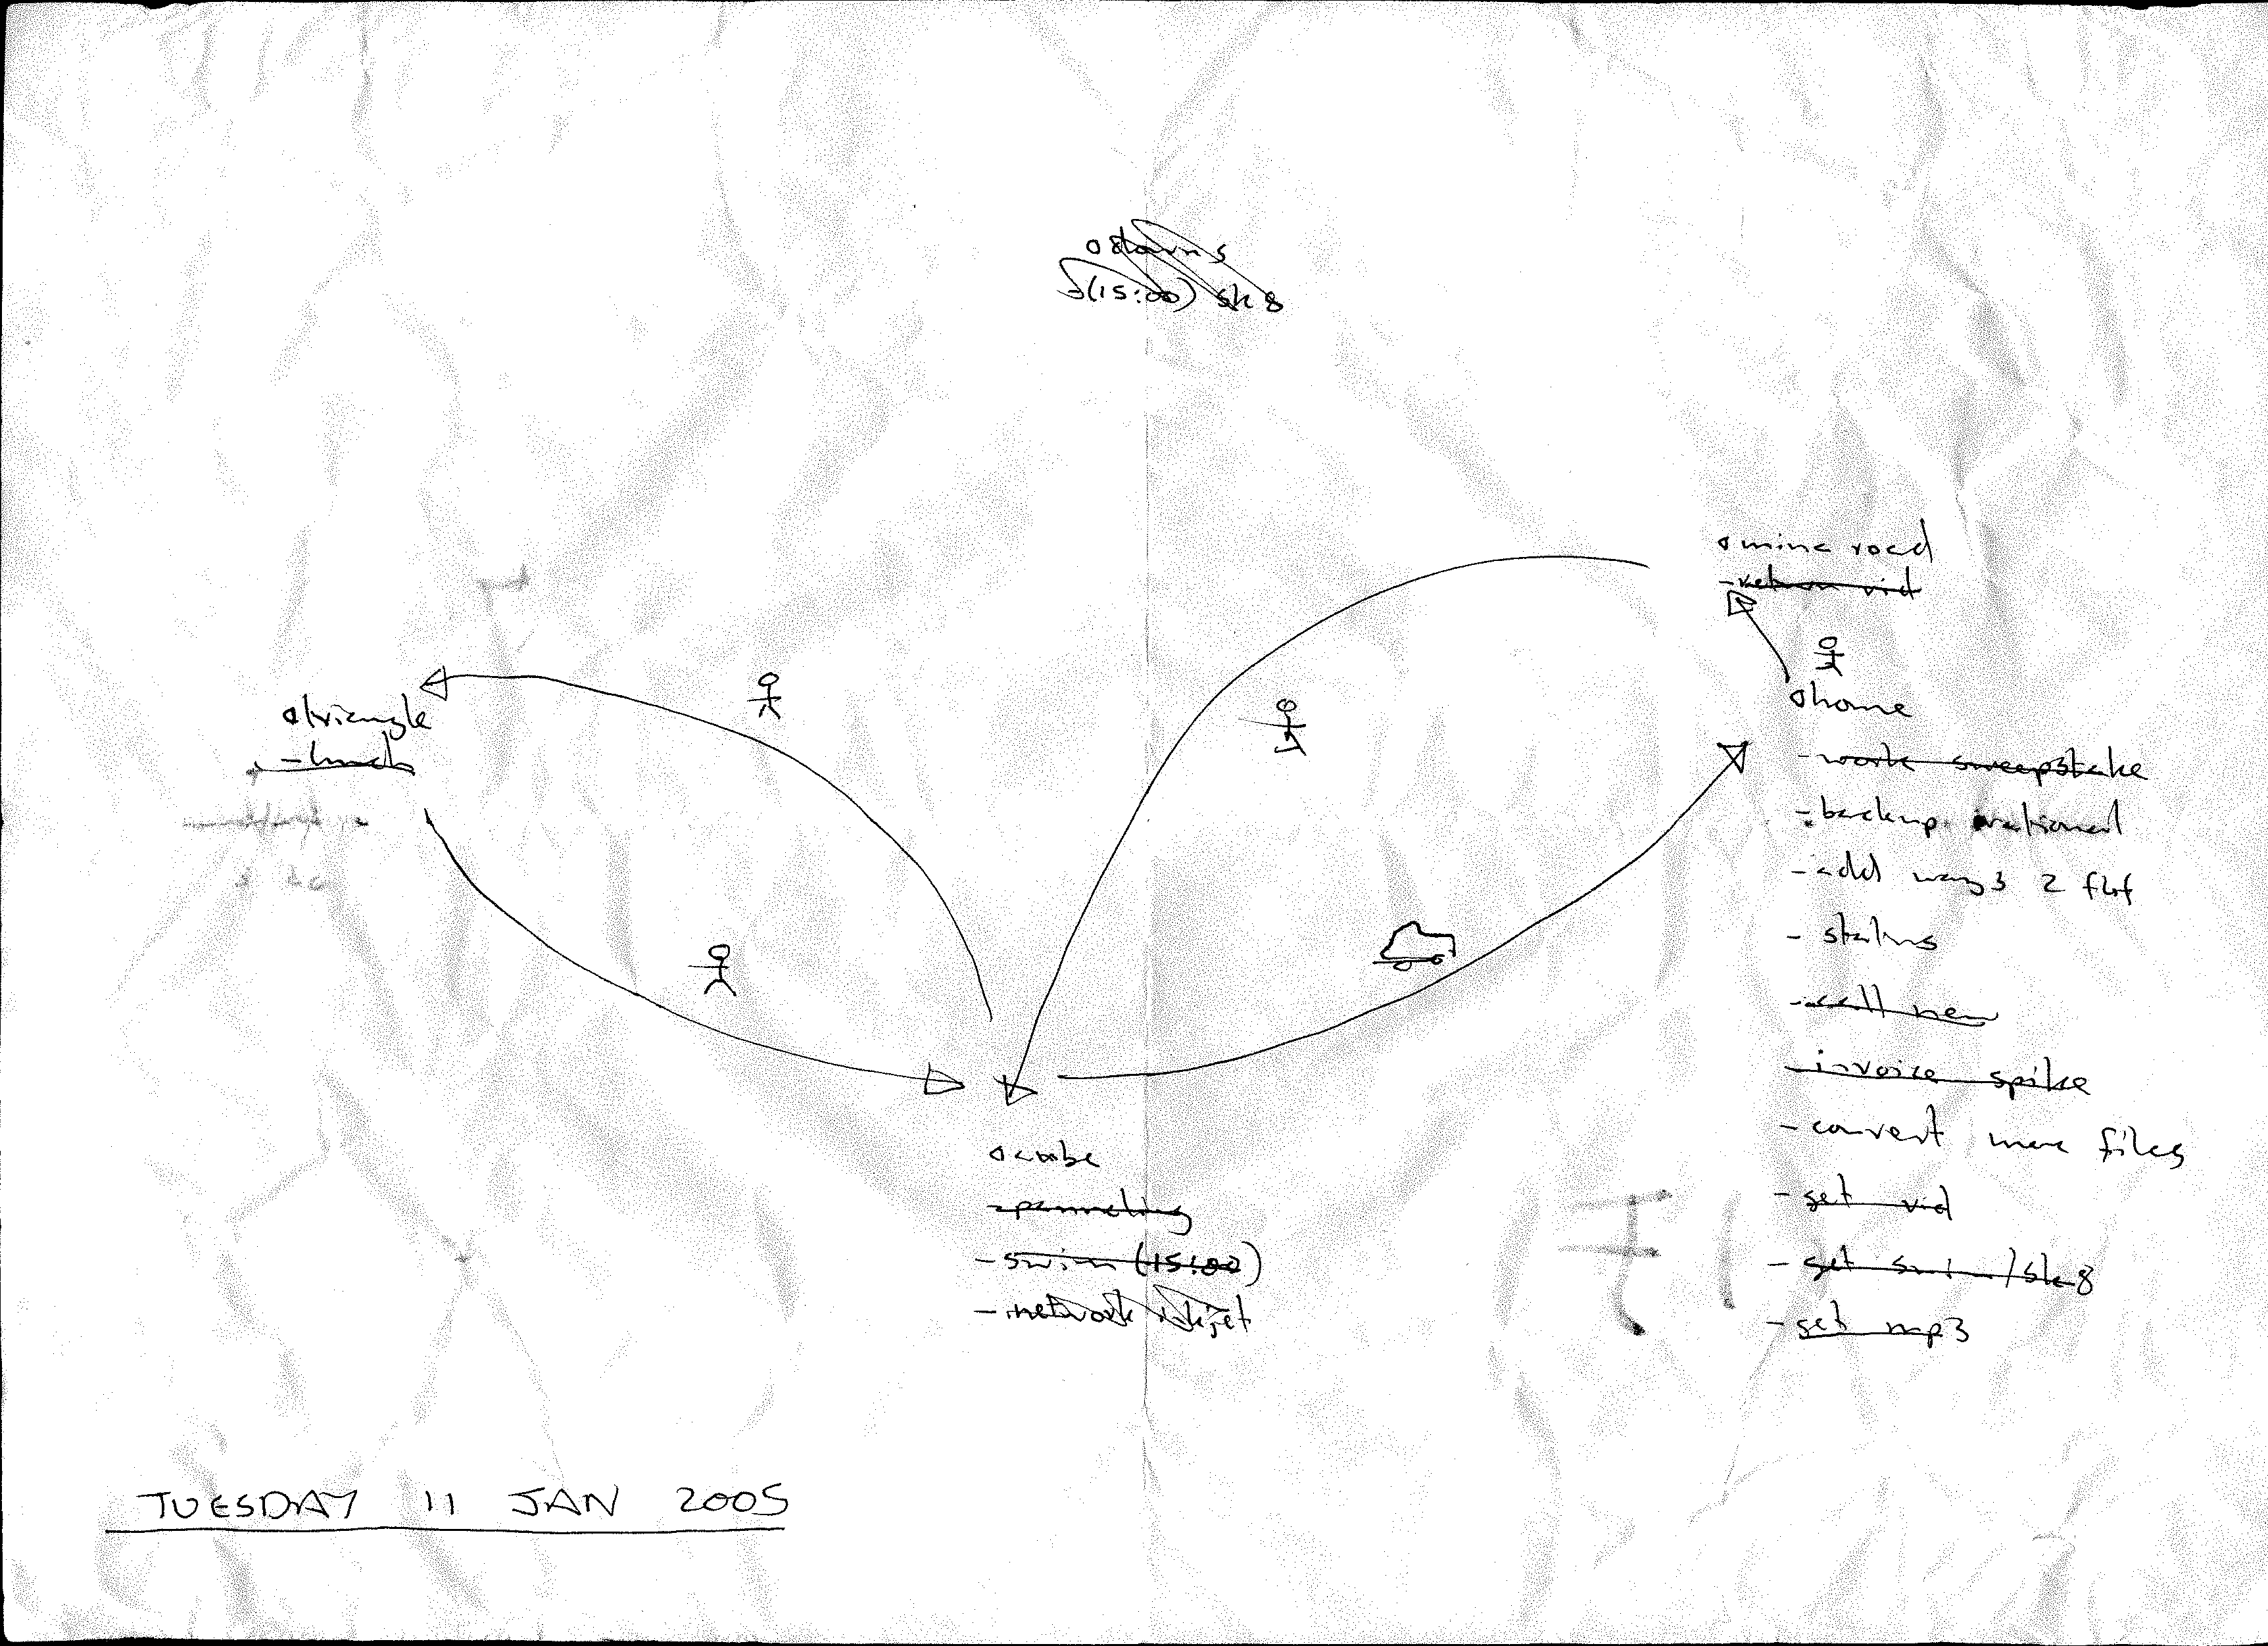 o downs
-(15:00) sk8
o mina road
- return vid
o home
- work sweepstake
- backup irational
- add ways 2 flat
- status
- call
- invoice spike
- convert more files
- get vid
- get swim/sk8
- get mp3
o triangle
- lunch
o cube
- swim (15:00)
- network inkjet
TUESDAY 11 JAN 2005